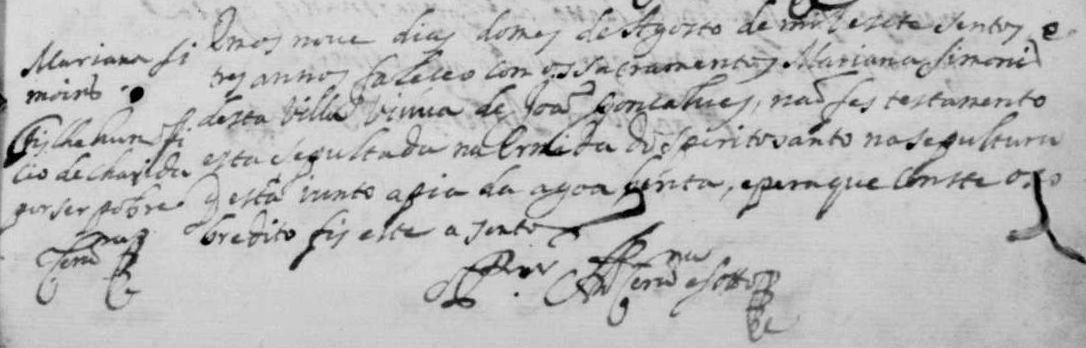 Mariana Si
moins
Fis lhe hum offi
cio de charida
por ser pobre
Em os nove dias do mes de Agosto de mil e sete sentos e
tres annos faleceo com os sacramentos Mariana Simoins
desta Villa viuva de João Gonçalves, não fes testamento
esta sepultada na Ermida do spirito santo na sepultura
desta junto a pia da agoa benta, e pera que conste o so
bredito fis este asento
O Prior